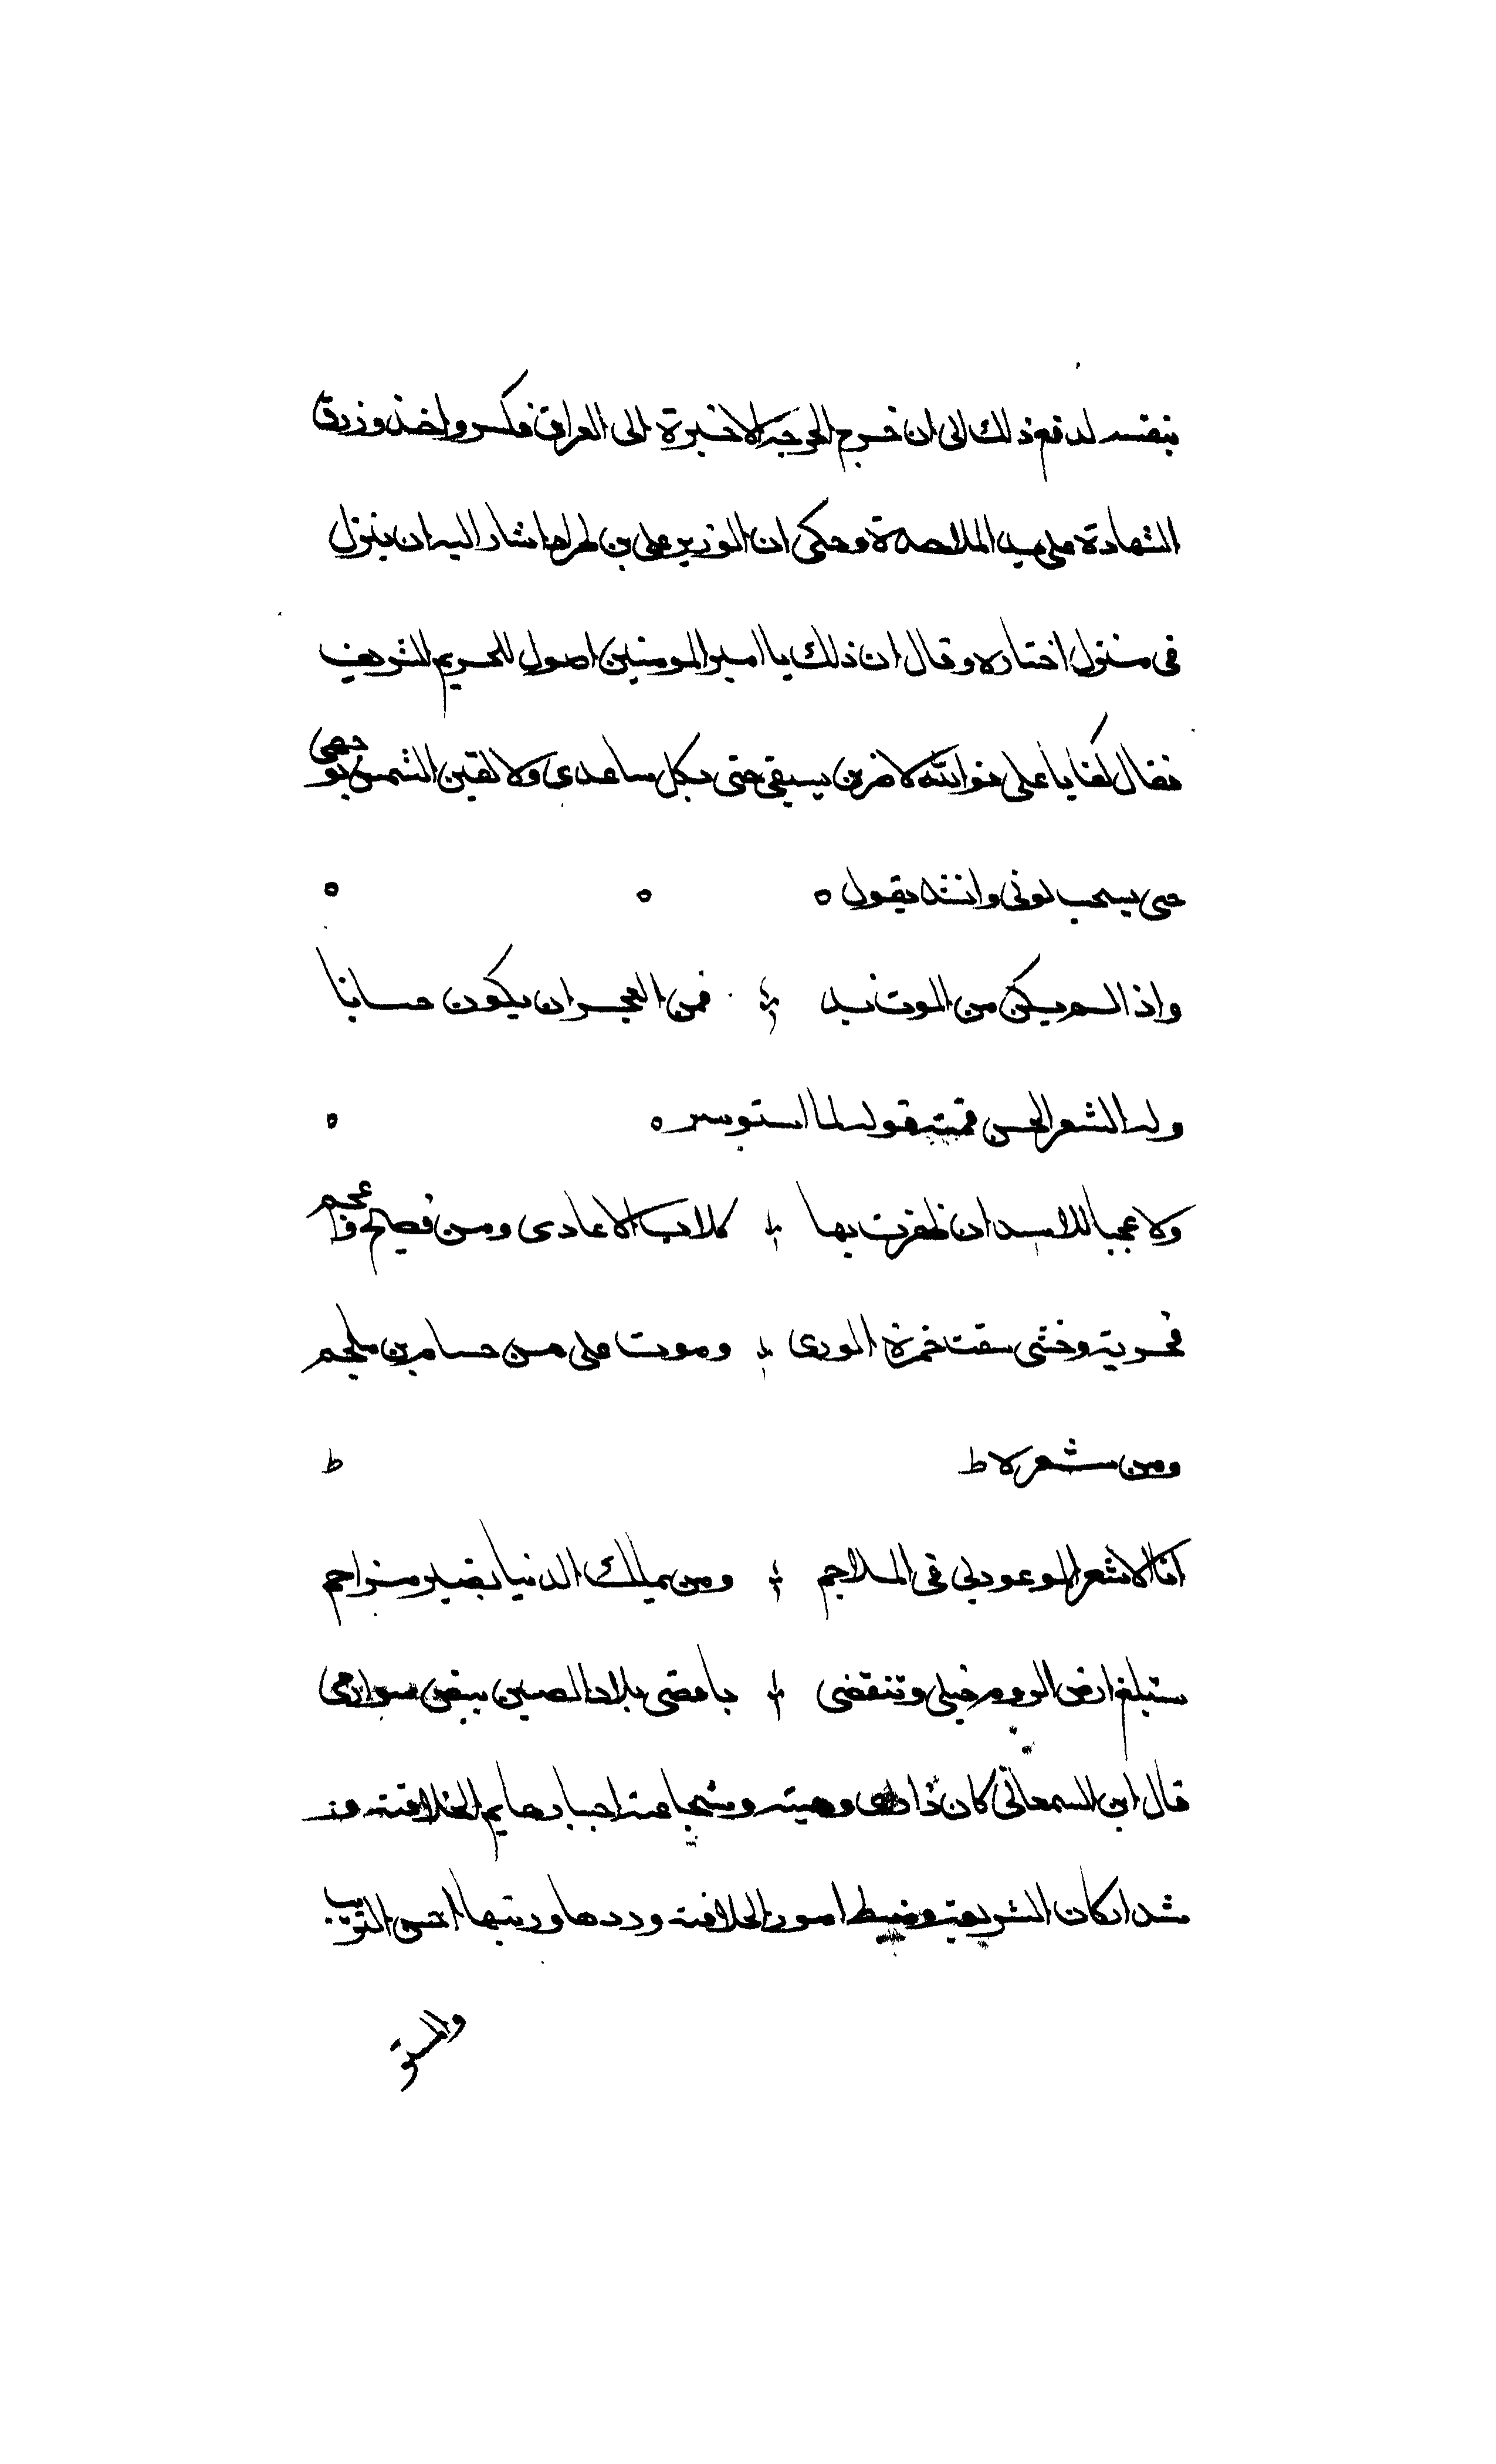 بنفسه لدفع ذلك الى ان خرج الخرجة الاخيرة الى العراق فكسر واخذ وزرق
الشهادة على يد الملاحدة وحكى ان الوزير على بن طراد اشار اليه ان ينزل
فى منزل اختاره وقال ان ذلك يا امير المومنين اصول للحريم الشريف
فقال كف يا على فوالله لاضربن بسيفى حتى يكل ساعدى ولالقين الشمس بوجهى
حتى يسحب لونى وانشد يقول ه ه ه
واذا لم يكن من الموت بد ؛ فمن العجز ان يكون جبانا
وله الشعر الحسن فمنه قوله لما استوسر ه ه
ولا عجبا للاسد ان ظفرت بها ؛ كلاب الاعادى ومن فصيح واعجم
فحربة وحشى سقت حمزة الردى ؛ وموت على من حسام بن ملجم
ومن شعره ط ط
انا الاشقر الموعود بى فى الملاحم ؛ ومن يملك الدنيا بغير مزاحم
ستبلغ ارض الروم خيلى وتنتضى ؛ باقصى بلاد الصين بيض صوارمى
قال ابن السمعانى كان ذا راى وهيبة وشجاعة احيا رمايم الخلافة و
شد اركان الشريعة وضبط امور الخلافة ورددها ورتبها احسن الترتيب